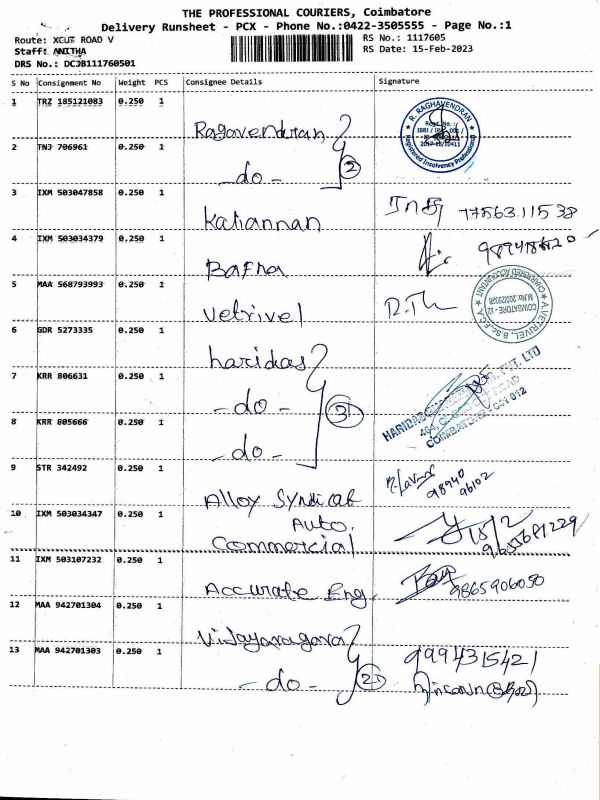 THE PROFESSIONAL COURIERS, Coimbatore
Delivery Runsheet - PCX - Phone No.:0422-3505555 - Page No.:1
Route: XCUS ROAD V
RS No.: 1117605
Staff: ANITHA
RS Date: 15-Feb-2023
DRS No.: DCJB111760501
S No Consignment No Weight PCS Consignee Details Signature
1 TRZ 185121083 0.250 1 Ragavendran
R. RAGHAVENDRAN
Registered Insolvency Professional
2 TNJ 706961 0.250 1 - do - 2
3 IXM 503047858 0.250 1 Kaliannan 77563 11538
4 IXM 503034379 0.250 1 Bafna
5 MAA 568793993 0.250 1 Vetrivel
A. VETRIVEL, B.Sc, F.C.A
CHARTERED ACCOUNTANT
COIMBATORE - 12
6 GDR 5273335 0.250 1 haridas
7 KRR 806631 0.250 1 - do - 3
HARIDAS PVT. LTD
COIMBATORE 641 012
8 KRR 805666 0.250 1 - do -
9 STR 342492 0.250 1 Alloy Syndicat
98940
96102
10 IXM 503034347 0.250 1 Auto.
Commercial
15/2
11 IXM 503107232 0.250 1 Accurate Eng.
9865906050
12 MAA 942701304 0.250 1 Vijayaragava
13 MAA 942701303 0.250 1 - do - 2
9994315421